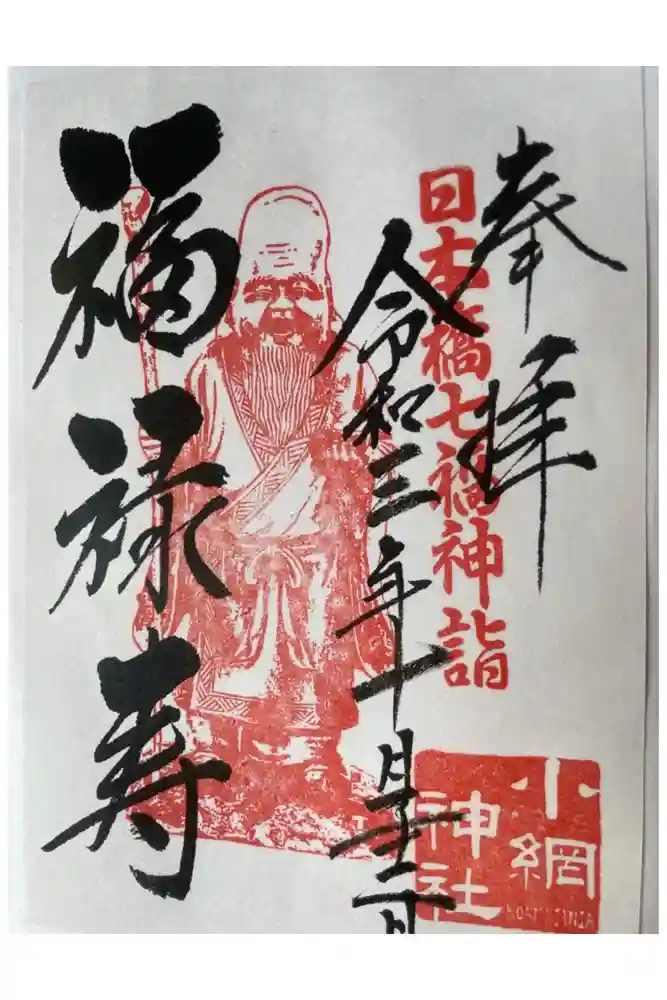 奉拝
日本橋七福神詣
令和三年十月
福禄寿
小網
神社